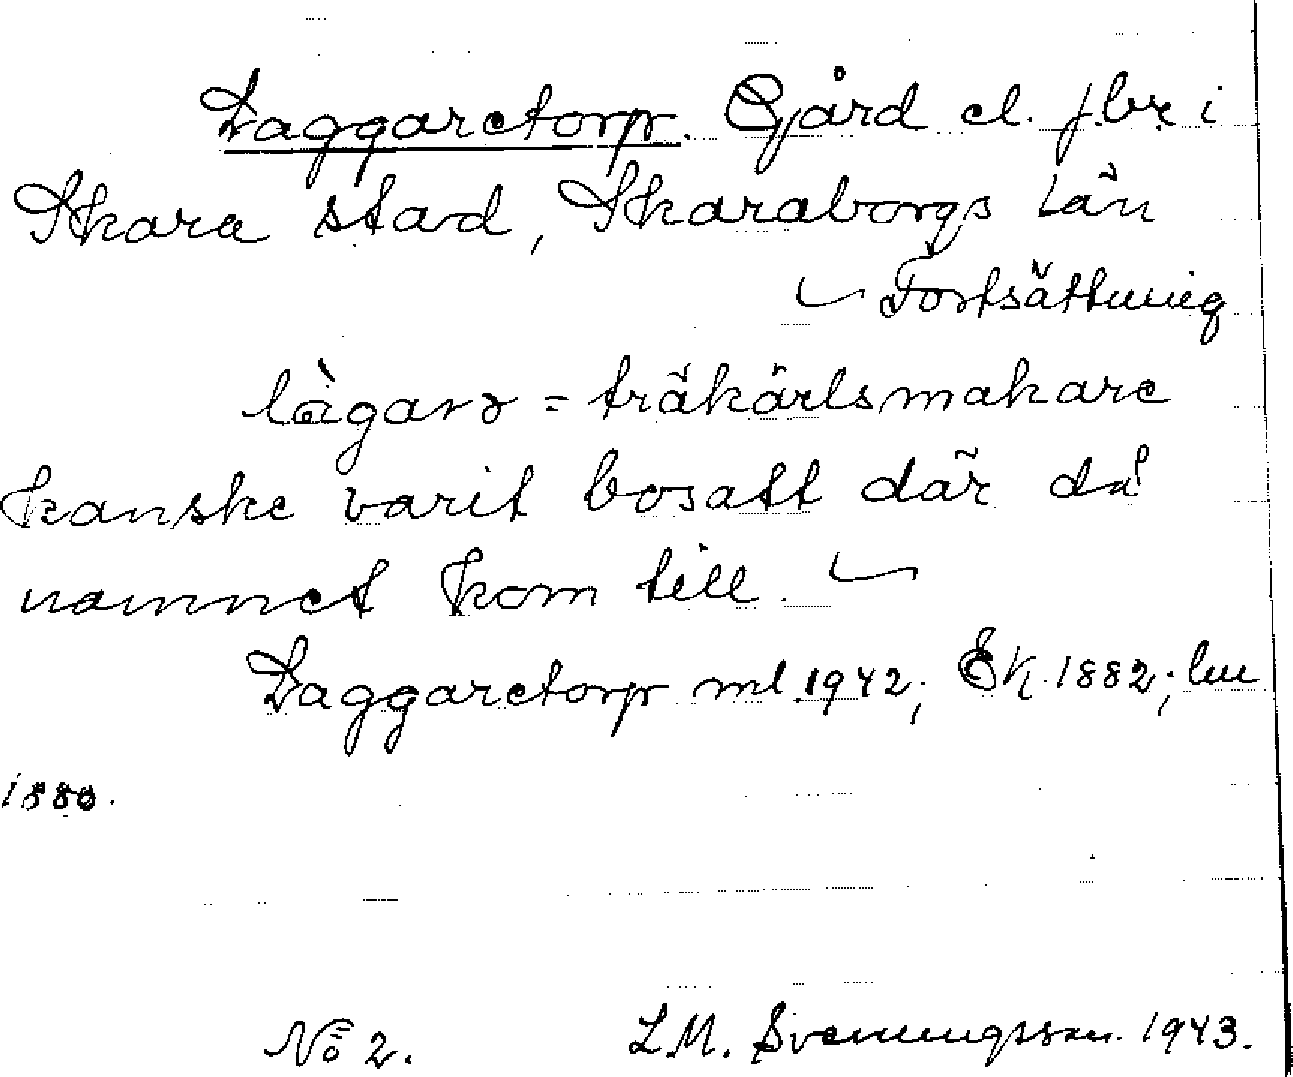 Laggaretorp. Gård el. jbr i
Skara stad, Skaraborgs län
Fortsättning
làgarə = träkärlsmakare
kanske varit bosatt där då
namnet kom till.
Laggaretorp ml 1942; EK. 1882;
1880.
No 2. L.M. Svenungsson. 1943.